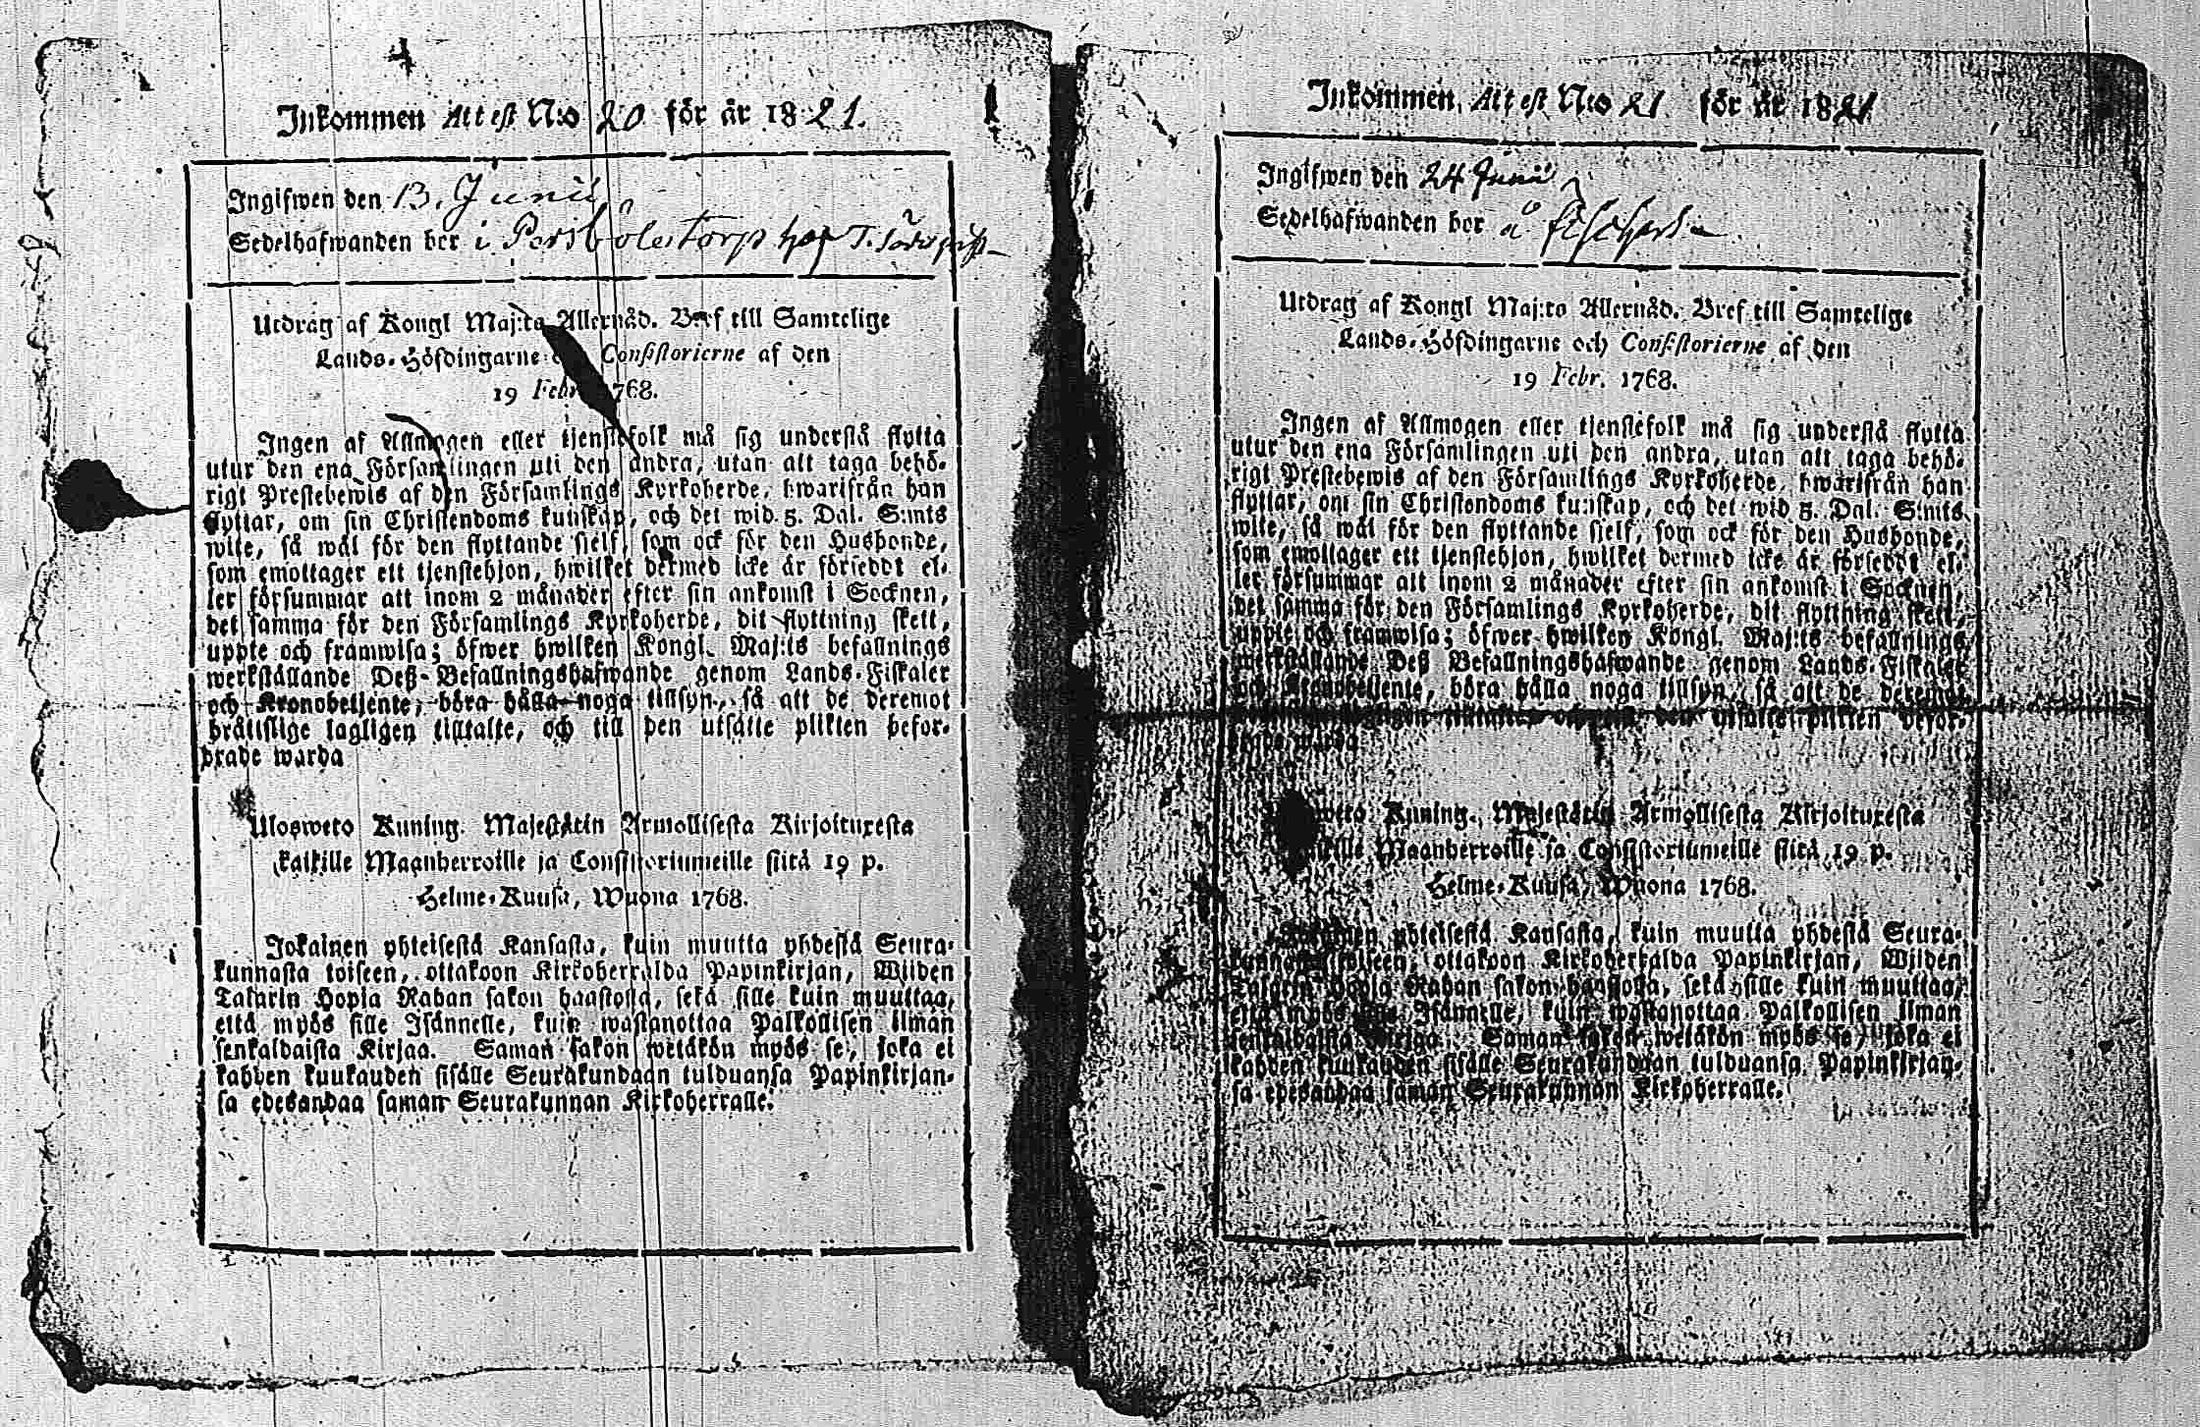 Inkommen Attest N:o 20 för år 1821.
Ingifwen den 13. Junii
Sedelhafwanden bor i Persbölestorp hos
Utdrag af Kongl Maj:ts Allernåd. Bref till Samtelige
Lands-Höfdingarne Consistorierne af den
19 Febr. 1768.
Ingen af Allmogen eller tjenstefolk må sig understå flytta
utur den ena Församlingen uti den andra, utan att taga behö-
rigt Prestebewis af den Församlings Kyrkoherde, hwarifrån han
flyttar, om sin Christendoms kunskap, och det wid 5. Dal. S:mts
wite, så wäl för den flyttande sielf, som ock för den Husbonde,
som emottager ett tjenstehjon, hwilket dermed icke är försedt el-
ler försummar att inom 2 månader efter sin ankomst i Socknen,
det samma för den Församlings Kyrkoherde, dit flyttning skett,
uppte och framwisa; öfwer hwilken Kongl. Maj:ts befallnings
werkställande Deß Befallningshafwande genom Lands-Fiskaler
och Kronobetjente, böra hålla noga tillsyn, så att de deremot
brottslige lagligen tilltalte, och till den utsatte plikten befor-
drade warda
Ulosweto Kuning. Majestätin Armollisesta Kirjoituxesta
kaikille Maanherroille ja Consistoriumeille siitä 19 p.
Helme-Kuusa, Wuona 1768.
Jokainen yhteisestä Kansasta, kuin muutta yhdestä Seura-
kunnasta toiseen, ottakoon Kirkoherralda Papinkirjan, Wijden
Talarin Hopia Rahan sakon haastossa, sekä sille kuin muuttaa,
että myös sille Isännelle, kuin wastanottaa Palkollisen ilman
senkaldaista Kirjaa. Saman sakon wetäkön myös se, joka ei
kahden kuukauden sisälle Seurakundaan tulduansa Papinkirjan-
sa edesandaa saman Seurakunnan Kirkoherralle.
Inkommen Attest N:o 21 för år 1821
Ingifwen den 24 Junii
Sedelhafwanden bor å
Utdrag af Kongl Maj:ts Allernåd. Bref till Samtelige
Lands-Höfdingarne och Consistorierne af den
19 Febr. 1768.
Ingen af Allmogen eller tjenstefolk må sig understå flytta
utur den ena Församlingen uti den andra, utan att taga behö-
rigt Prestebewis af den Församlings Kyrkoherde, hwarifrån han
flyttar, om sin Christendoms kunskap, och det wid 5. Dal. S:mts
wite, så wäl för den flyttande sielf, som ock för den Husbonde,
som emottager ett tjenstehjon, hwilket dermed icke är försedt el-
ler försummar att inom 2 månader efter sin ankomst i Socknen,
det samma för den Församlings Kyrkoherde, dit flyttning skett,
uppte och framwisa; öfwer hwilken Kongl. Maj:ts befallnings
werkställande Deß Befallningshafwande genom Lands-Fiskaler
och Kronobetjente, böra hålla noga tillsyn, så att de deremot
den utsatte plikten befor-
drade warda
Kuning. Majestätin Armollisesta Kirjoituxesta
Maanherroille ja Consistoriumeille siitä 19 p.
Helme-Kuusa, Wuona 1768.
yhteisestä Kansasta, kuin muutta yhdestä Seura-
kunnasta toiseen, ottakoon Kirkoherralda Papinkirjan, Wijden
Talarin Hopia Rahan sakon haastossa, sekä sille kuin muuttaa,
että myös sille Isännelle, kuin wastanottaa Palkollisen ilman
senkaldaista Kirjaa. Saman sakon wetäkön myös se, joka ei
kahden kuukauden sisälle Seurakundaan tulduansa Papinkirjan-
sa edesandaa saman Seurakunnan Kirkoherralle.